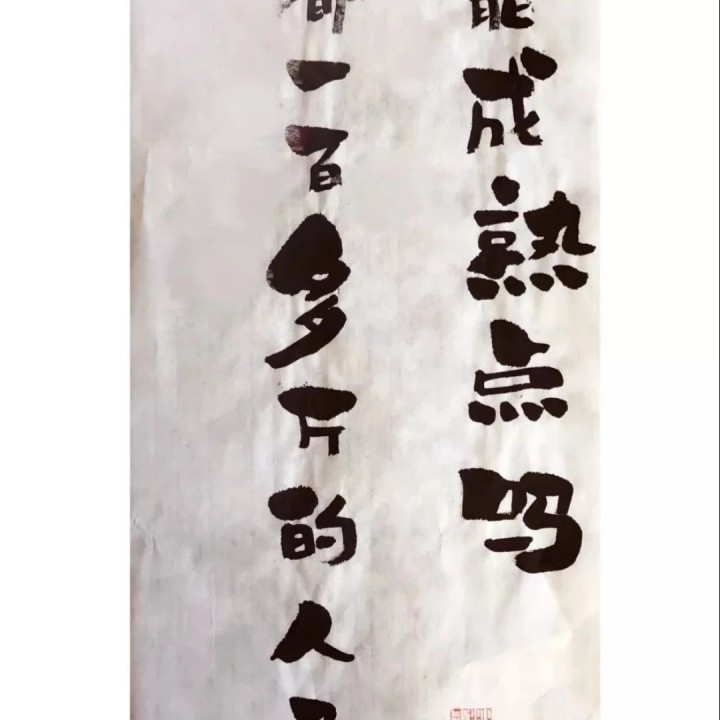 都一百多万的人
能成熟点吗